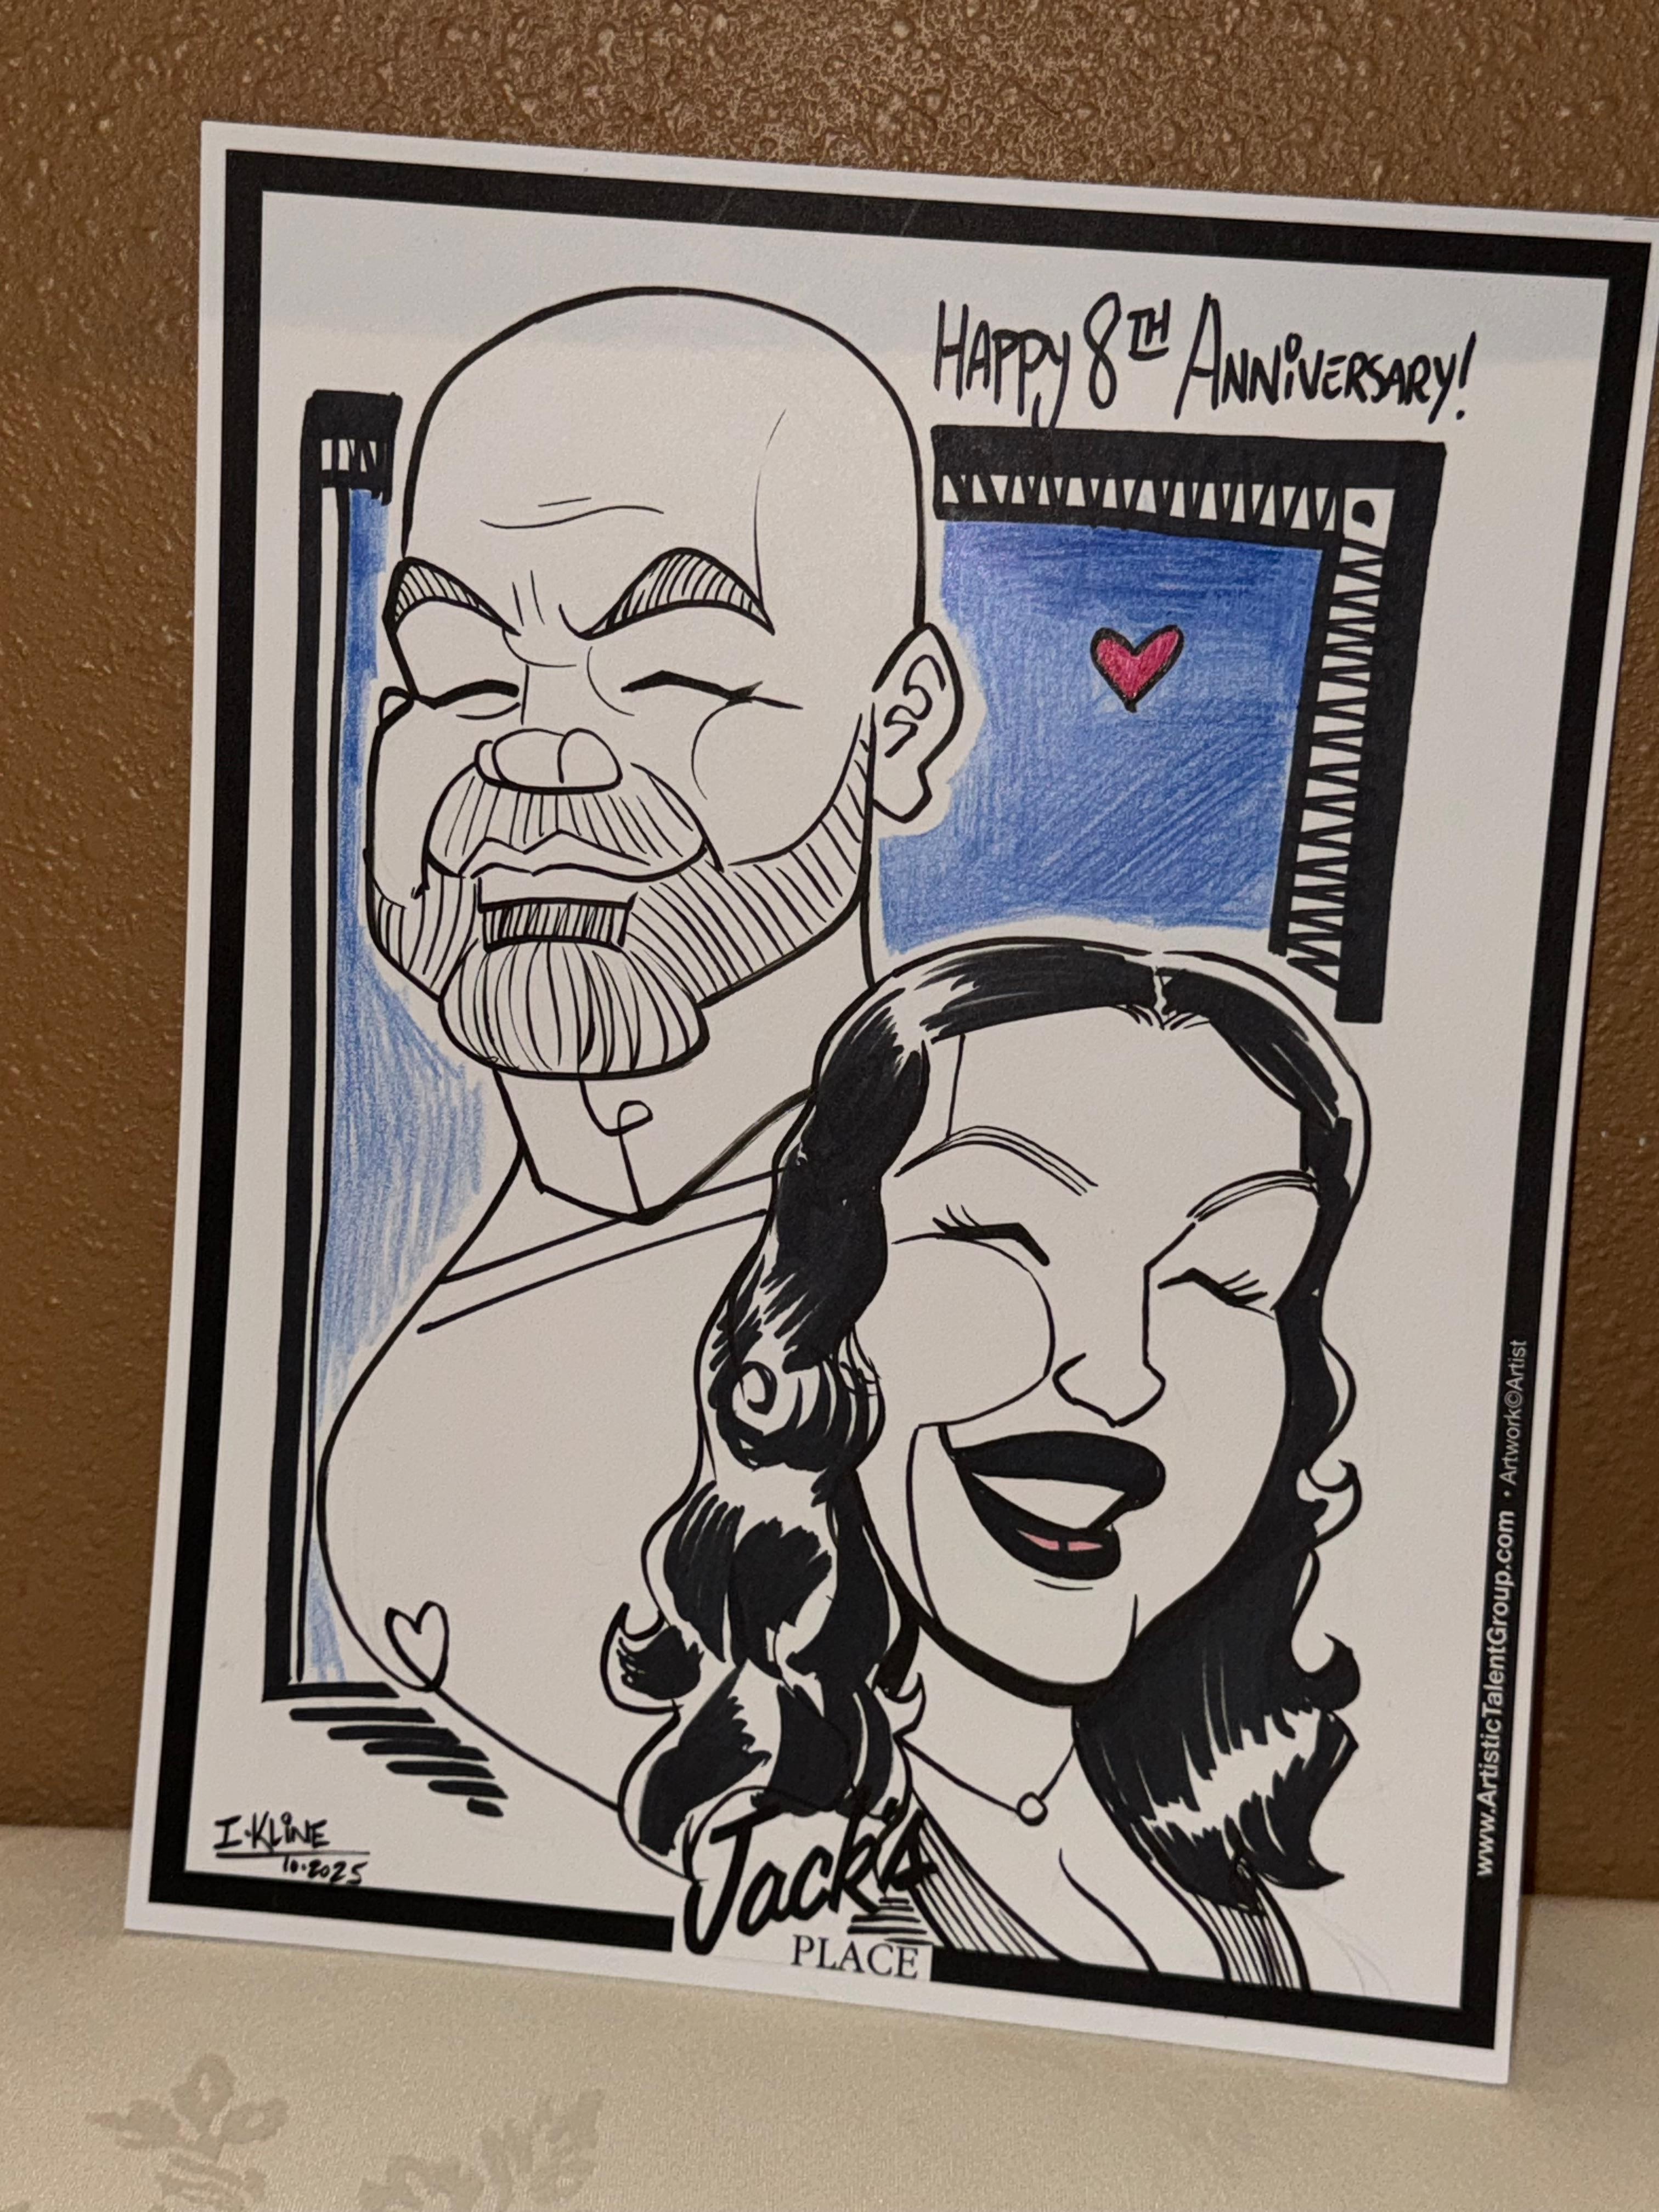 HAPPY 8TH ANNIVERSARY!
www.ArtisticTalentGroup.com • Artwork©Artist
I. KLINE
10.2025
Jack's
PLACE